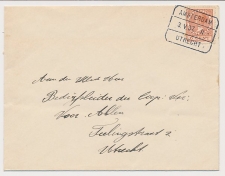 AMSTERDAM
UTRECHT
Aan den Heer
Bedrijfsleider der Coop.
Voor Allen
Seelingstraat 2
Utrecht